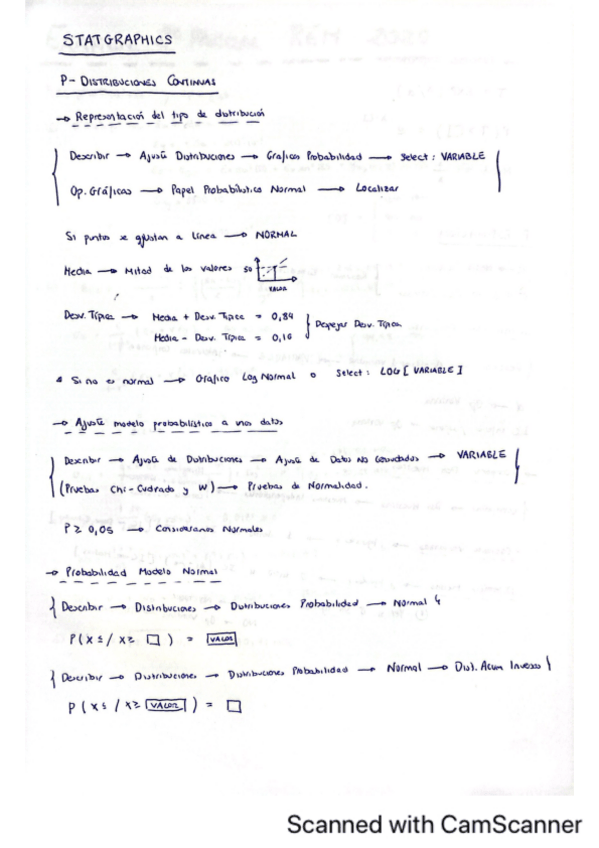 STATGRAPHICS
P - DISTRIBUCIONES CONTINUAS
→ Representación del tipo de distribución
Describir → Ajuste Distribuciones → Graficos Probabilidad → Select : VARIABLE
Op. Gráficas → Papel Probabilistico Normal → Localizar
Si puntos se ajustan a línea → NORMAL
Media → Mitad de los valores 50
VALOR
Desv. Típica → Media + Desv. Tipica = 0,84
Media - Desv. Tipica = 0,16
Despejar Desv. Típica
Si no es normal → Grafico Log Normal o Select : LOG [ VARIABLE ]
→ Ajuste modelo probabilístico a unos datos
Describir → Ajuste de Distribuciones → Ajuste de Datos No Censurados → VARIABLE
(Pruebas Chi-Cuadrado y W) → Pruebas de Normalidad.
P ≥ 0,05 → Consideramos Normales
→ Probabilidad Modelo Normal
Describir → Distribuciones → Distribuciones Probabilidad → Normal
P ( X ≤ / X ≥ □ ) = VALOR
Describir → Distribuciones → Distribuciones Probabilidad → Normal → Dist. Acum Inversa
P ( X ≤ / X ≥ VALOR ) = □
Scanned with CamScanner